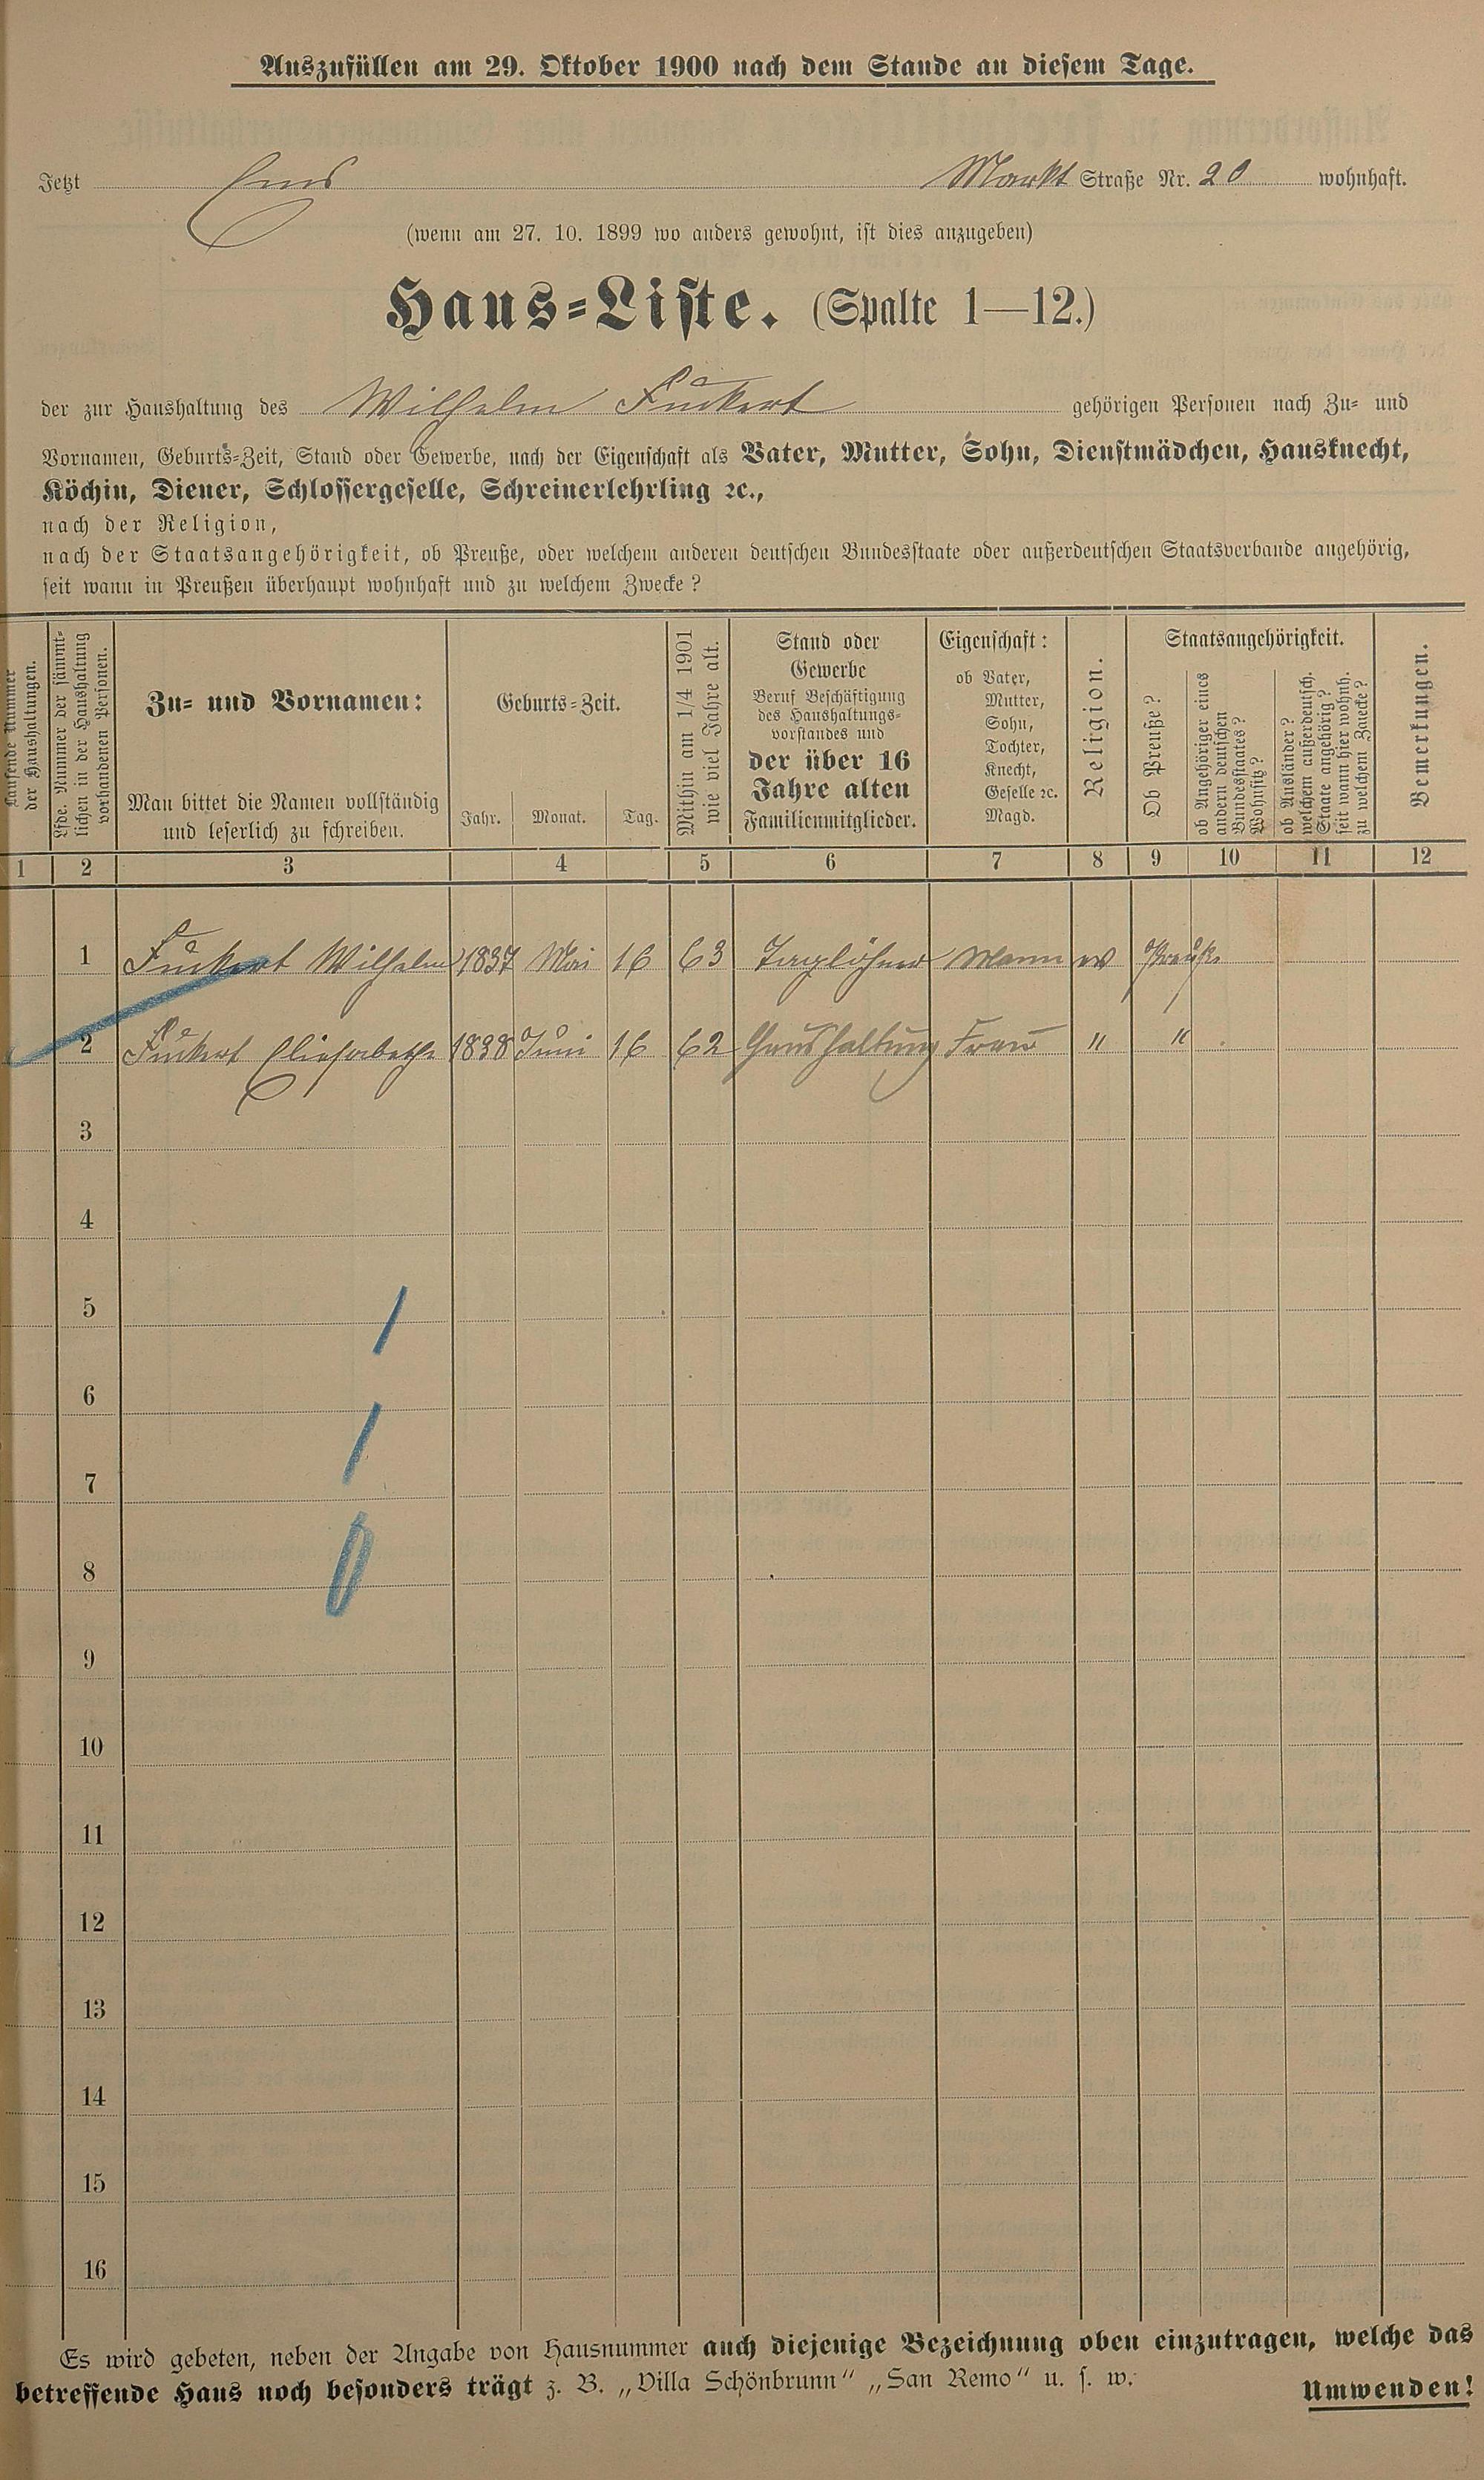 Auszufüllen am 29. Oktober 1900 nach dem Stande an diesem Tage.
Jetzt Ems Markt Straße Nr. 20 wohnhaft.
(wenn am 27. 10. 1899 wo anders gewohnt, ist dies anzugeben)
Haus-Liste. (Spalte 1—12.)
der zur Haushaltung des Wilhelm Fuckert gehörigen Personen nach Zu- und
Vornamen, Geburts-Zeit, Stand oder Gewerbe, nach der Eigenschaft als Vater, Mutter, Sohn, Dienstmädchen, Hausknecht,
Köchin, Diener, Schlossergeselle, Schreinerlehrling ꝛc.,
nach der Religion,
nach der Staatsangehörigkeit, ob Preuße, oder welchem anderen deutschen Bundesstaate oder außerdeutschen Staatsverbande angehörig,
seit wann in Preußen überhaupt wohnhaft und zu welchem Zwecke?
Laufende Nummer
der Haushaltungen.
Lfde. Nummer der sämmt-
lichen in der Haushaltung
vorhandenen Personen.
Zu- und Vornamen:
Man bittet die Namen vollständig
und leserlich zu schreiben.
Geburts-Zeit.
Jahr. Monat. Tag.
Mithin am 1/4 1901
wie viel Jahre alt.
Stand oder
Gewerbe
Beruf Beschäftigung
des Haushaltungs-
vorstandes und
der über 16
Jahre alten
Familienmitglieder.
Eigenschaft:
ob Vater,
Mutter,
Sohn,
Tochter,
Knecht,
Geselle ꝛc.
Magd.
Religion.
Staatsangehörigkeit.
Ob Preuße?
ob Angehöriger eines
andern deutschen
Bundesstaates?
Wohnsitz?
ob Ausländer?
welchem außerdeutsch.
Staate angehörig?
seit wann hier wohnh.
zu welchem Zwecke?
Bemerkungen.
1 2 3 4 5 6 7 8 9 10 11 12
1 Fuckert Wilhelm 1837 Mai 16 63 Taglöhner Mann ev Preuße
2 Fuckert Eliesabethe 1838 Juni 16 62 Haushaltung Frau " "
3
4
5
6
7
8
9
10
11
12
13
14
15
16
Es wird gebeten, neben der Angabe von Hausnummer auch diejenige Bezeichnung oben einzutragen, welche das
betreffende Haus noch besonders trägt z. B. „Villa Schönbrunn" „San Remo" u. s. w.
Umwenden!